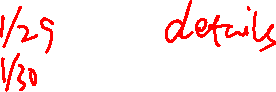 1/29 details
1/30